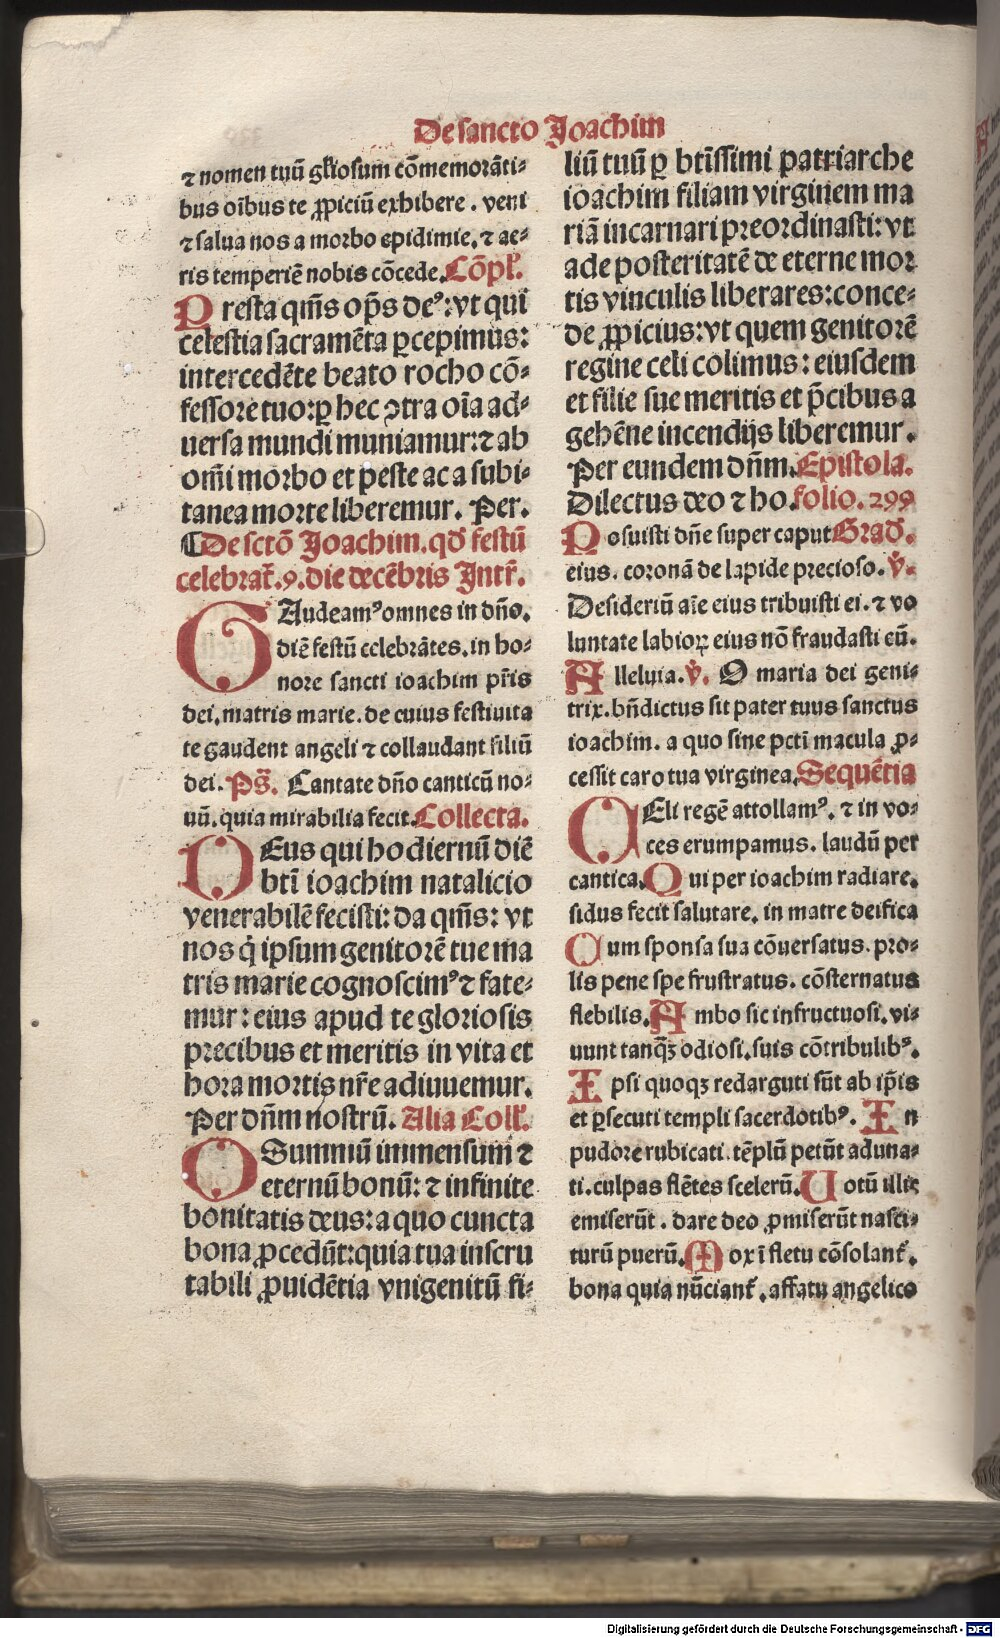 De sancto Joachim
⁊ nomen tuū gl'iosum cōmemorāti-
bus oībus te ꝓpiciū exhibere . veni
⁊ salua nos a morbo epidimie. ⁊ ae-
ris temperiē nobis cōcede. Cōpl'.
Presta qm̄s op̄s deꝰ: vt qui
celestia sacramēta ꝑcepimus:
intercedēte beato rocho cō-
fessore tuo: ꝑ hec ꝯtra oīa ad-
uersa mundi muniamur: ⁊ ab
om̄i morbo et peste ac a subi-
tanea morte liberemur. Per.
¶ De sctō Joachim. qd' festū
celebrat'. 9. die decēbris Intr̄.
GAudeamꝰ omnes in dn̄o.
diē festū celebrātes. in ho-
nore sancti ioachim pr̄is
dei. matris marie. de cuius festiuita
te gaudent angeli ⁊ collaudant filiū
dei. Ps̄. Cantate dn̄o canticū no-
uū. quia mirabilia fecit. Collecta.
DEus qui hodiernū diē
btī ioachim natalicio
venerabilē fecisti: da qm̄s: vt
nos q̇ ipsum genitorē tue ma
tris marie cognoscimꝰ ⁊ fate-
mur: eius apud te gloriosis
precibus et meritis in vita et
hora mortis nr̄e adiuuemur.
Per dn̄m nostrū. Alia Coll'.
O Summū immensum ⁊
eternū bonū: ⁊ infinite
bonitatis deus: a quo cuncta
bona ꝓcedūt: quia tua inscru
tabili ꝓuidētia vnigenitū fi-
liū tuū ꝑ btīssimi patriarche
ioachim filiam virginem ma
riā incarnari preordinasti: vt
ade posteritatē de eterne mor
tis vinculis liberares: conce-
de ꝓpicius: vt quem genitorē
regine celi colimus: eiusdem
et filie sue meritis et p̄cibus a
gehēne incendijs liberemur.
Per eundem dn̄m. Epistola.
Dilectus deo ⁊ ho. folio. 299
Posuisti dn̄e super caput Grad'.
eius. coronā de lapide precioso. ℣.
Desideriū aīe eius tribuisti ei. ⁊ vo
luntate labioꝝ eius nō fraudasti eū.
Alleluia. ℣. O maria dei geni-
trix. bn̄dictus sit pater tuus sanctus
ioachim. a quo sine pcti macula ꝓ-
cessit caro tua virginea. Sequētia
CEli regē attollamꝰ. ⁊ in vo-
ces erumpamus. laudū per
cantica. Qui per ioachim radiare.
sidus fecit salutare. in matre deifica
Cum sponsa sua cōuersatus. pro-
lis pene spe frustratus. cōsternatus
flebilis. Ambo sic infructuosi. vi-
uunt tanqȝ odiosi. suis cōtribulibꝰ.
Ipsi quoqȝ redarguti sūt ab ip̄is
et ꝑsecuti templi sacerdotibꝰ. In
pudore rubicati. tēplū petūt aduna-
ti. culpas flētes scelerū. Uotū illic
emiserūt . dare deo ꝓmiserūt nasci-
turū puerū. Mox ī fletu cōsolant'.
bona quia nūciant'. affatu angelico
Digitalisierung gefördert durch die Deutsche Forschungsgemeinschaft - DFG